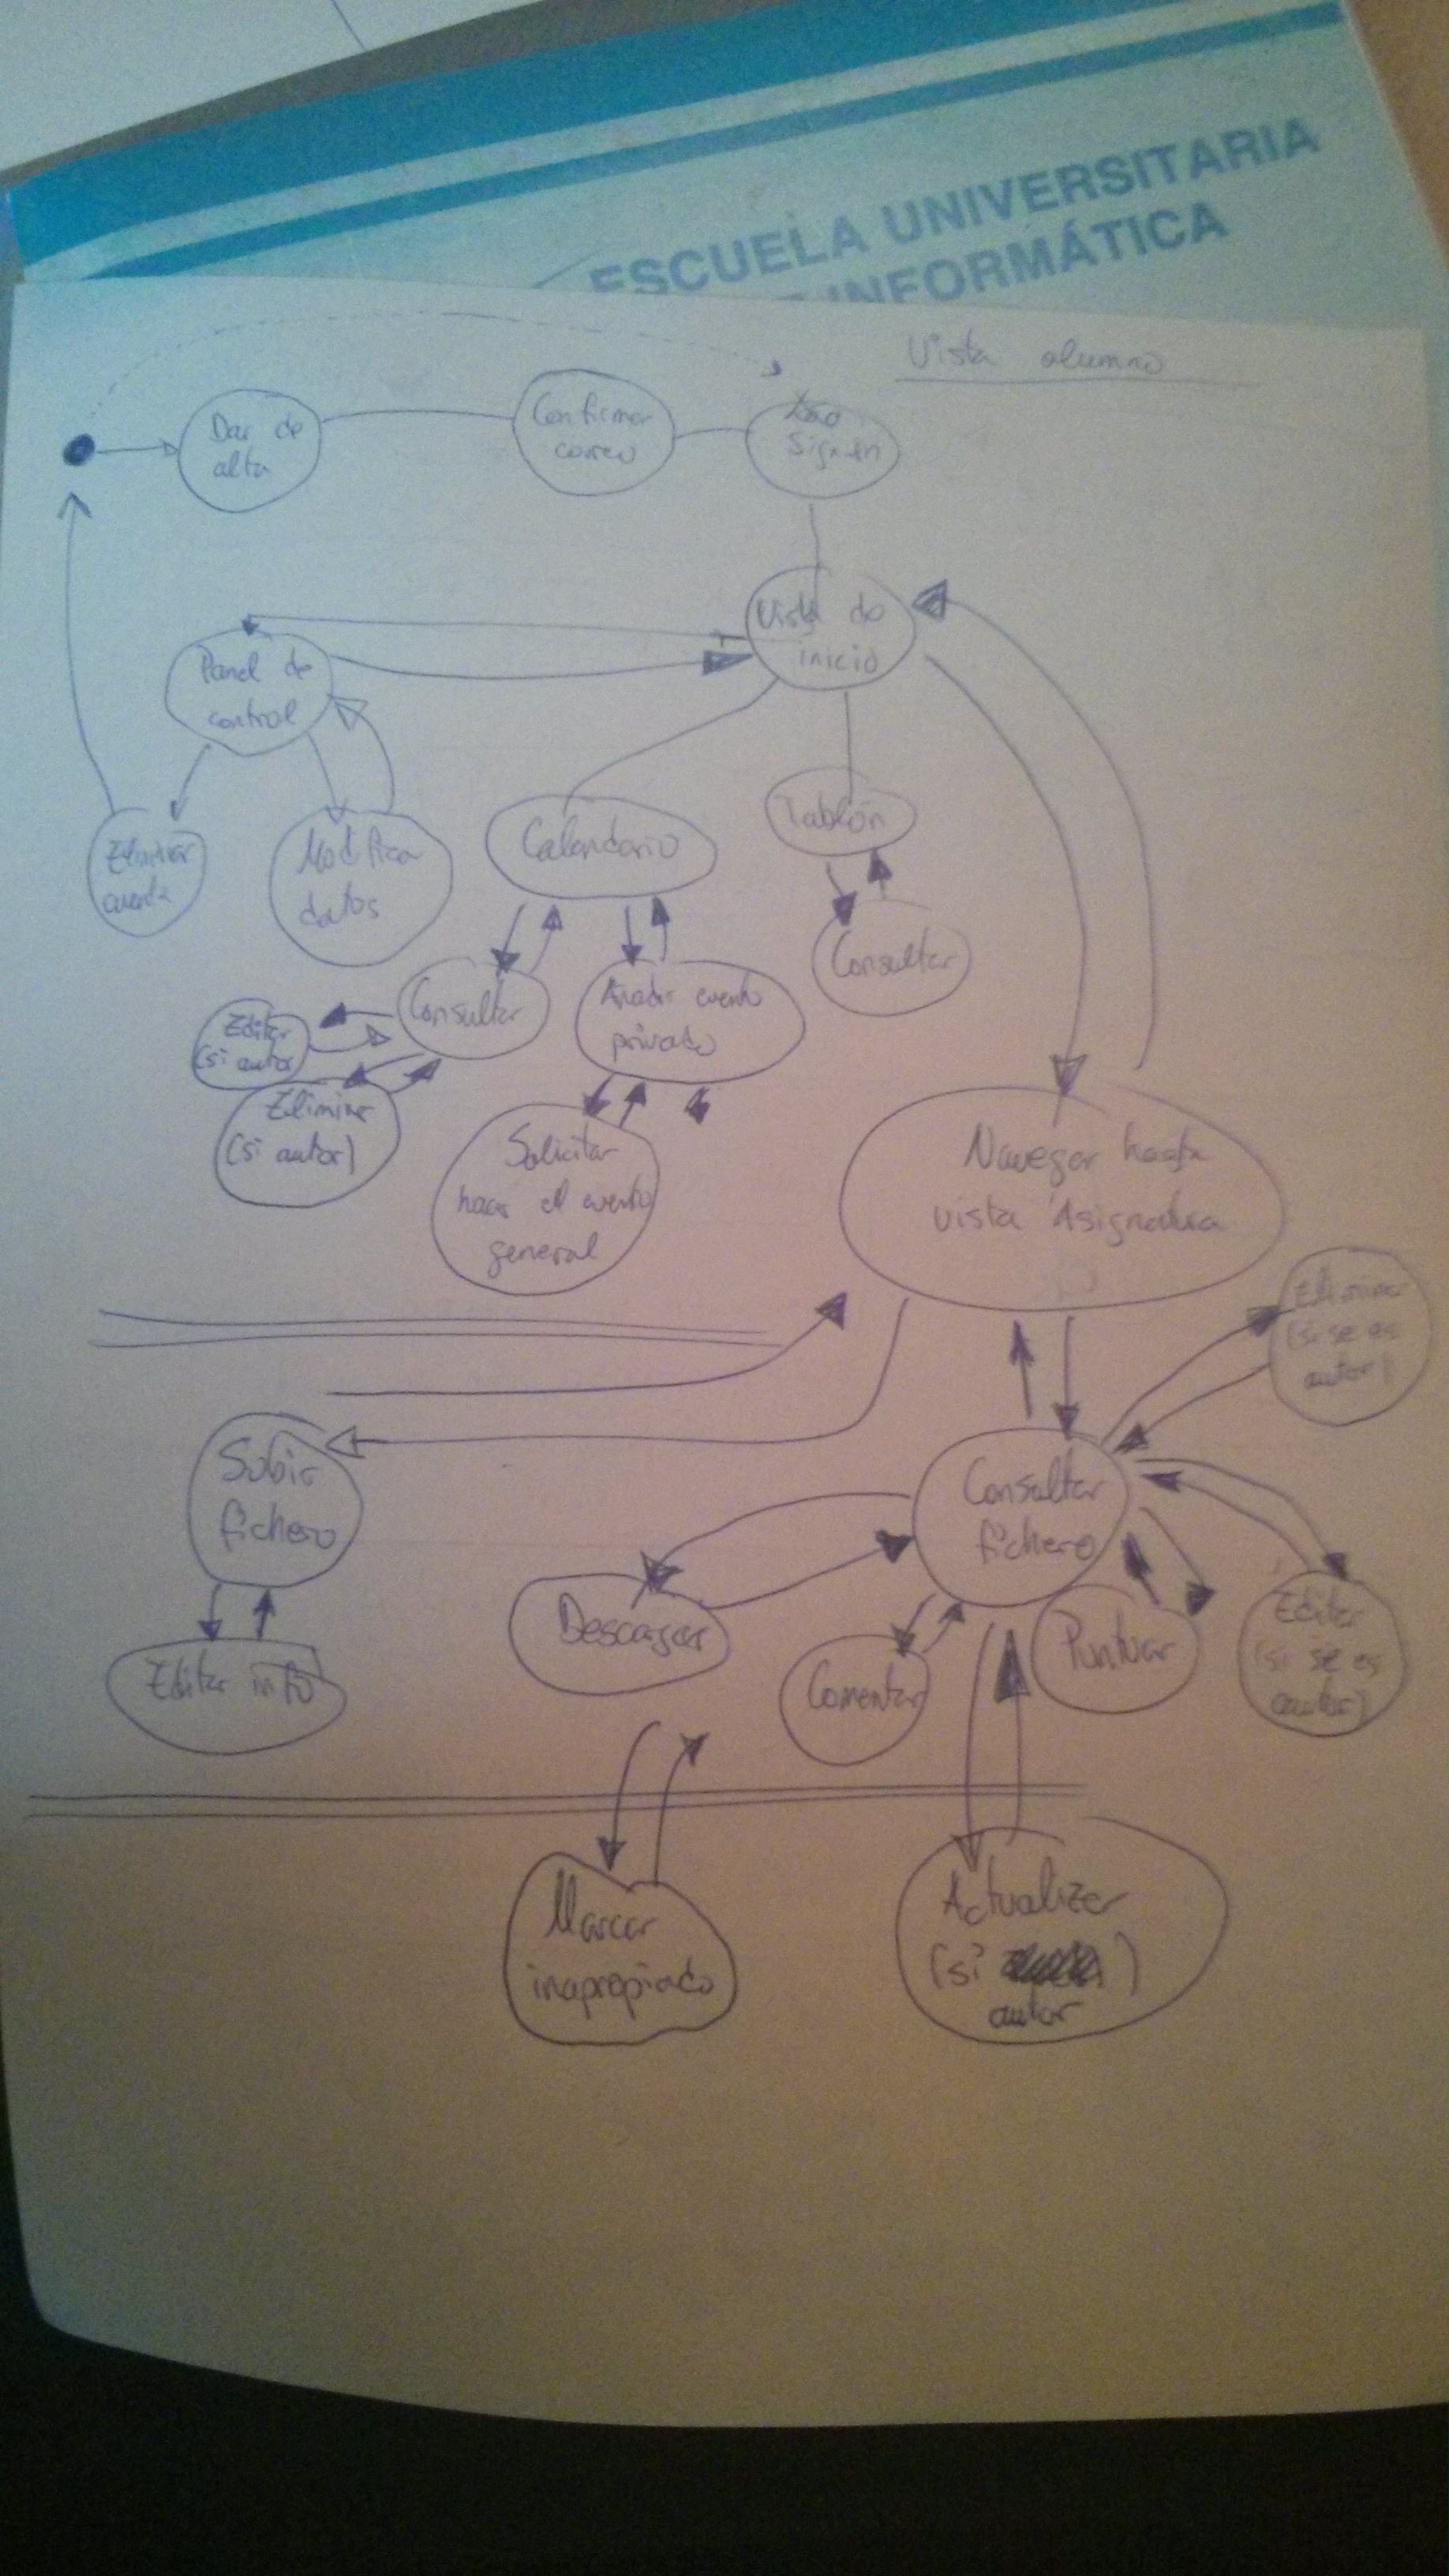 ESCUELA UNIVERSITARIA
INFORMÁTICA
Vista alumno
Dar de
alta
Confirmar
correo
Vista de
inicio
Panel de
control
Eliminar
cuenta
Modificar
datos
Calendario
Tablón
Consultar
Consultar
Añadir evento
privado
Editar
(si autor
Eliminar
(si autor)
Solicitar
hacer el evento
general
Navegar hasta
vista Asignatura
Eliminar
(si se es
autor)
Subir
fichero
Consultar
fichero
Editar info
Descargar
Comentar
Puntuar
Editar
(si se es
autor)
Marcar
inapropiado
Actualizar
(si )
autor